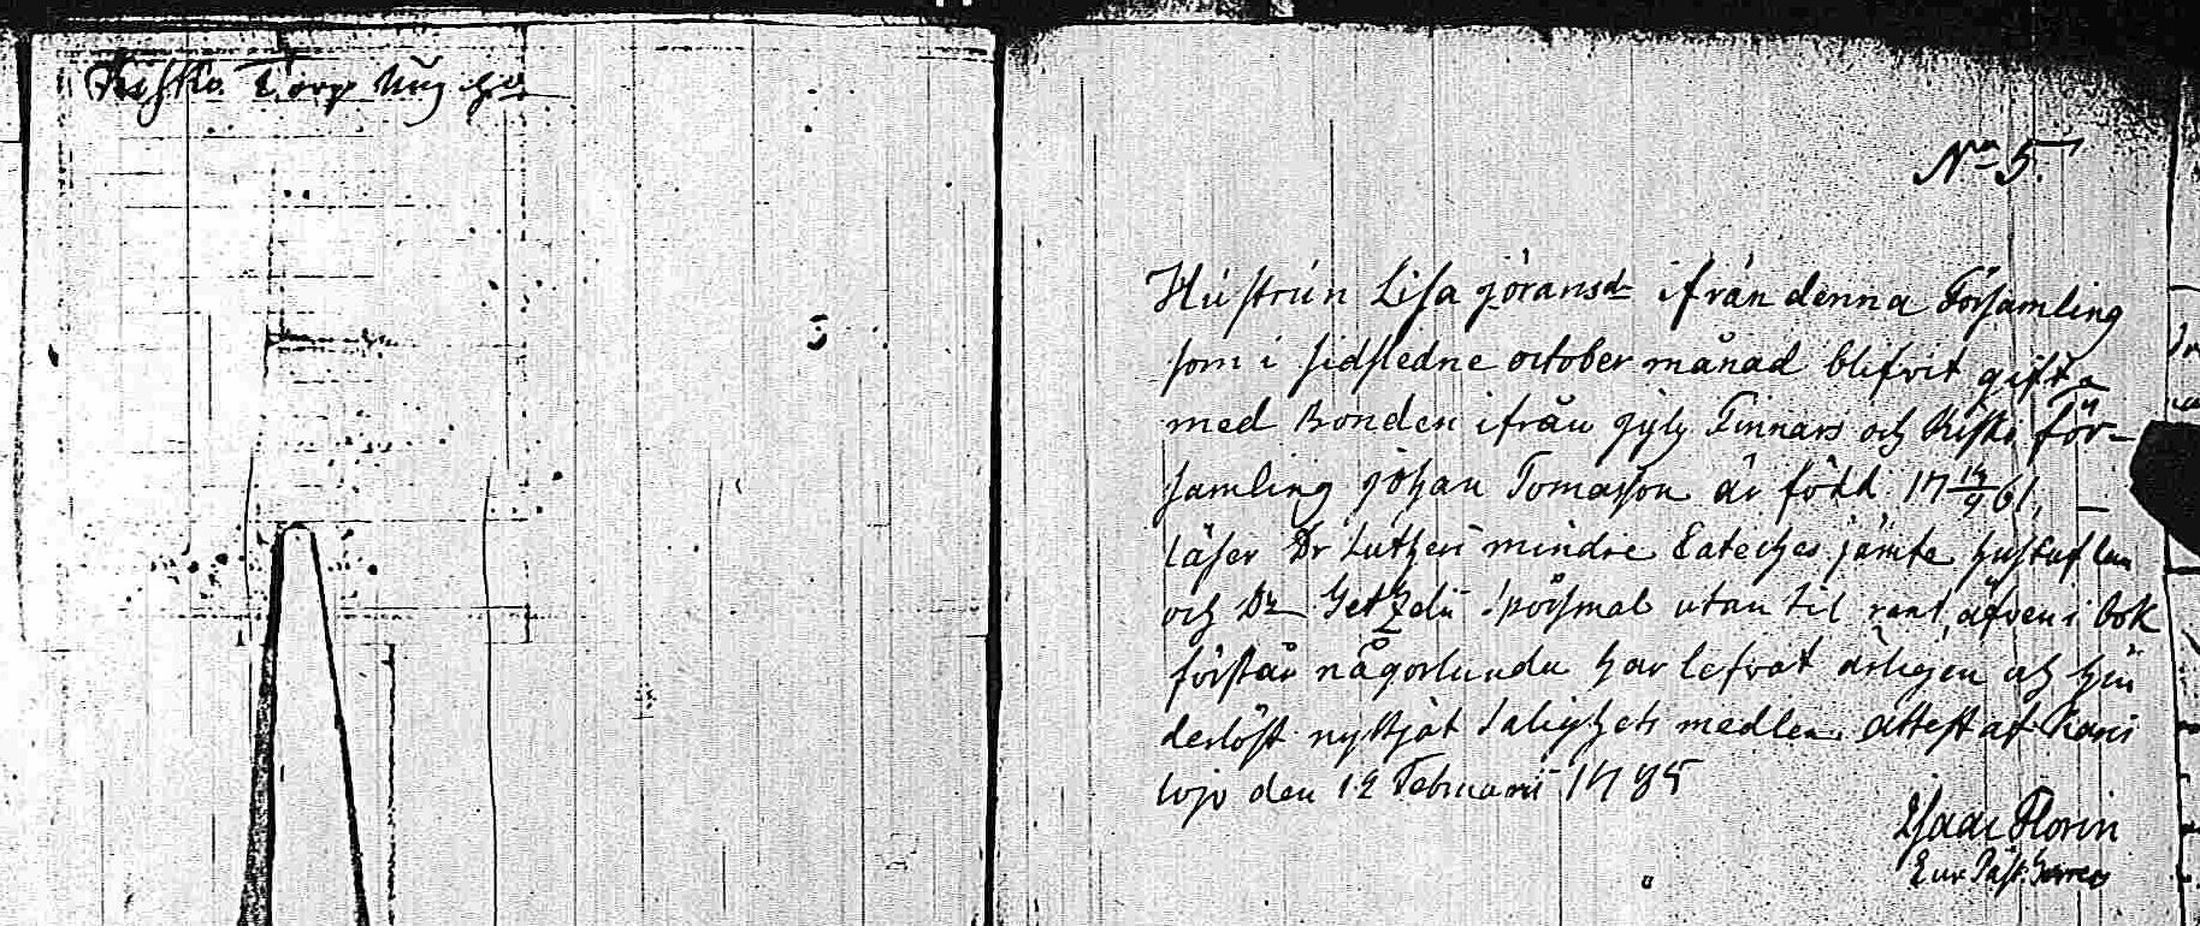 Kisko Torp
No 5.
Hustrun Lisa Göransdr ifrån denna Församling
som i sidstledne october månad blifvit gift
med Bonden ifrån Finnars och Kisko För-
samling Johan Tomasson är född 17 14/9 61,
Läser Dr Lutheri mindre Cateches jämte hustaflan
och Dr Spörsmål utan til rent äfven i bok
förstår någorlunda har lefvat ärligen och hin
derlöst nyttjat Salighets medlen. Attest af Karis
lojo den 12 Februarii 1785
Isaac Florin
Past.